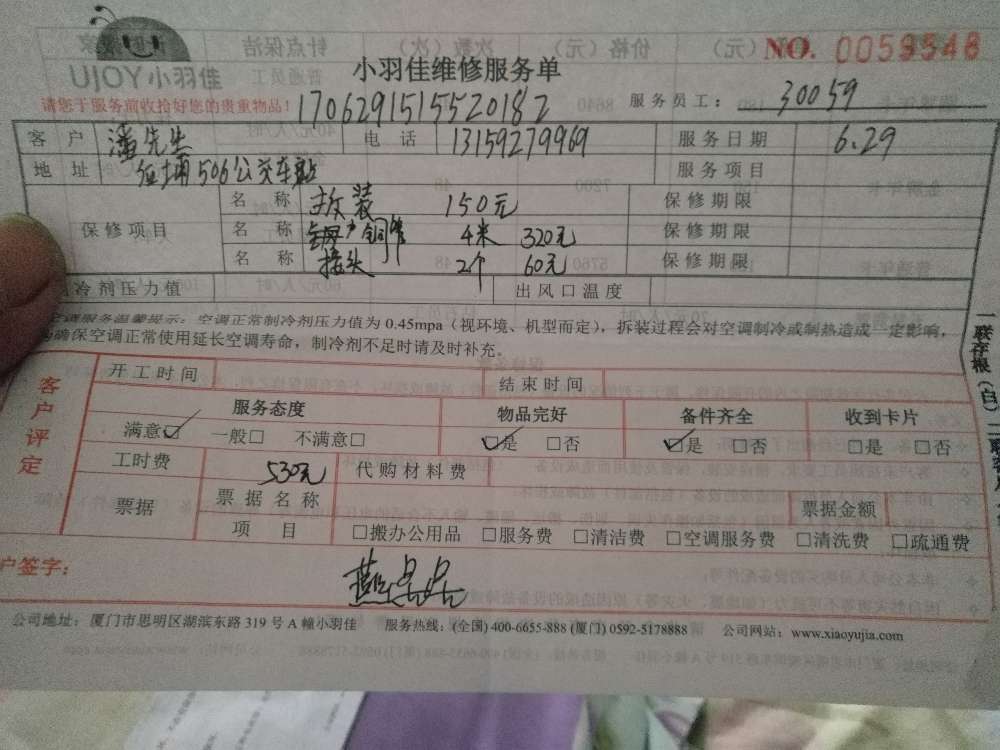 UJOY小羽佳
小羽佳维修服务单
NO. 0059548
请您于服务前收拾好您的贵重物品!
1706291515520182
服务员工: 30059
客户 潘先生 电话 13159279969 服务日期 6.29
地址 506公交车站 服务项目
保修项目
名称 拆装 150元 保修期限
名称 铜管 4米 320元 保修期限
名称 接头 2个 60元 保修期限
冷剂压力值 出风口温度
空调服务温馨提示: 空调正常制冷剂压力值为 0.45mpa (视环境、机型而定), 拆装过程会对空调制冷或制热造成一定影响,
确保空调正常使用延长空调寿命, 制冷剂不足时请及时补充。
一联存根(白)
客户评定
开工时间 结束时间
服务态度 物品完好 备件齐全 收到卡片
满意☑ 一般□ 不满意□ ☑是 □否 ☑是 □否 □是 □否
工时费 530元 代购材料费
票据 票据名称 票据金额
项目 □搬办公用品 □服务费 □清洁费 □空调服务费 □清洗费 □疏通费
户签字:
公司地址: 厦门市思明区湖滨东路 319 号 A 幢小羽佳 服务热线: (全国) 400-6655-888 (厦门) 0592-5178888 公司网站: www.xiaoyujia.com